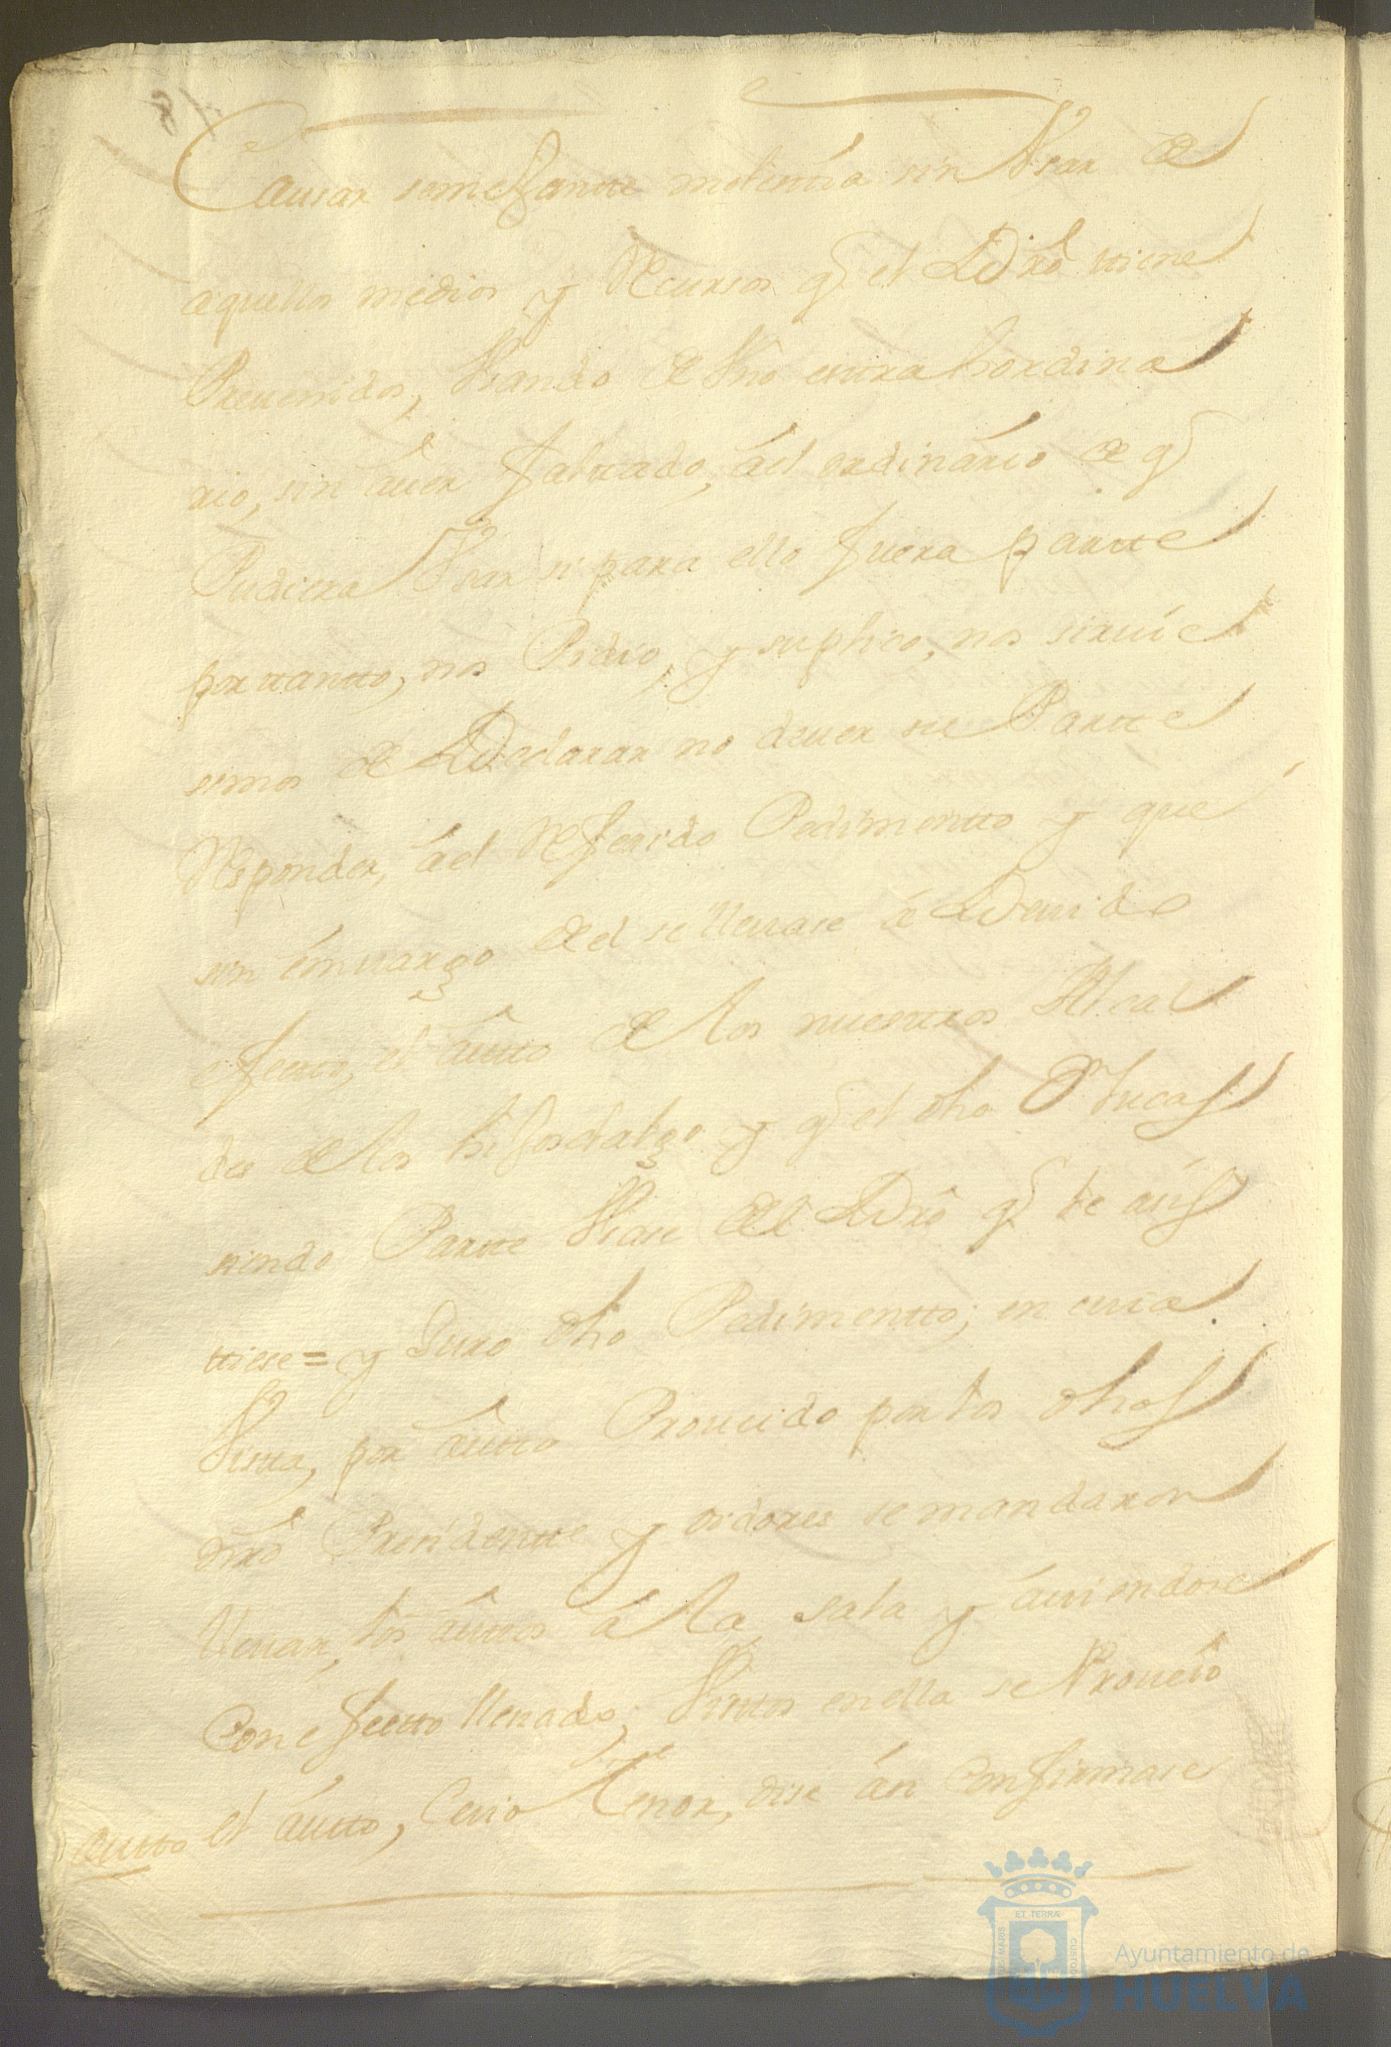 Causar semejantte molestia sin Vsar de
aquellos medios y Recursos q̃ el Dr̃o ttiene
Preuenidos, Vsando de Vno exttrahordina
rio, sin auer Salicado, ael ordinario de q̃
Pudiera Vsar si para ello fuera partte
por tantto, nos Pidio, y suplico, nos siruie
semos de Declarar no deuer su Partte
Responder, ael Referido Pedimentto y que
sin emuargo del se lleuase a Deuido
efectto, el autto de los nuesttros Alcal
des de los hijosdalgo y q̃ el dho Dn Lucas
siendo Partte Vsase del Dr̃o q̃ le asis
ttiese = y Juro dho Pedimentto; en cuia
Vistta, por autto Proueido por los dhos
nr̃o Presidentte y oidores se mandaron
lleuar, los auttos a la sala y auiendose
Con efectto lleuado, Visttos en ella se Proueio
autto el autto, Cuio tenor, dise an Confirmase
Ayuntamiento de
HUELVA
ET TERRÆ
MARIS
CUSTODIA